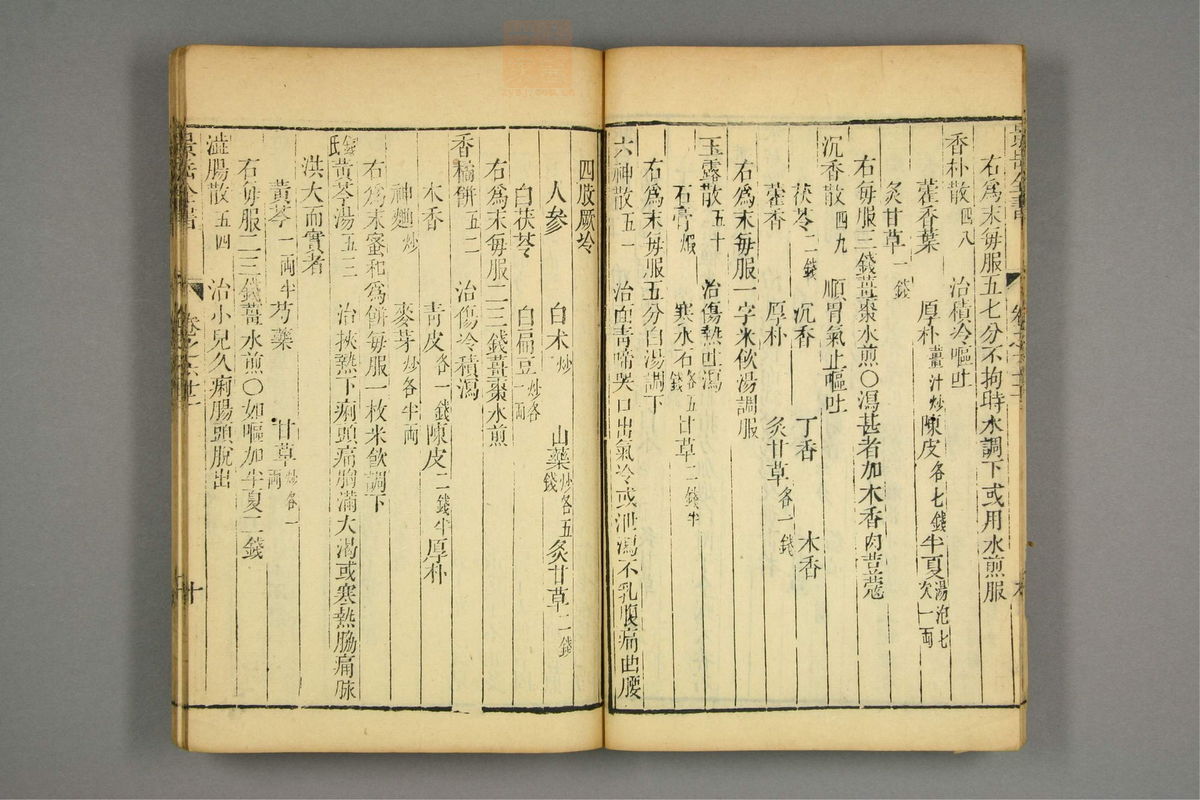 右爲末每服五七分不拘時水調下或用水煎服
香朴散四八 治積冷嘔吐
藿香葉 厚朴薑汁炒 陳皮各七錢 半夏湯泡七次一兩
炙甘草一錢
右每服三錢薑棗水煎○瀉甚者加木香肉荳蔻
沉香散四九 順胃氣止嘔吐
茯苓二錢 沉香 丁香 木香
藿香 厚朴 炙甘草各一錢
右爲末每服一字米飲湯調服
玉露散五十 治傷熱吐瀉
石膏煆 寒水石各五錢 甘草二錢半
右爲末每服五分白湯調下
六神散五一 治面青啼哭口出氣冷或泄瀉不乳腹痛曲腰
四肢厥冷
人參 白朮炒 山藥炒各五錢 炙甘草二錢
白茯苓 白扁豆炒各一兩
右爲末每服二三錢薑棗水煎
香橘餅五二 治傷冷積瀉
木香 青皮各一錢 陳皮二錢半 厚朴
神麯炒 麥芽炒各半兩
右爲末蜜和爲餅每服一枚米飲調下
錢氏黃芩湯五三 治挾熱下痢頭痛胸滿大渴或寒熱脇痛脉
洪大而實者
黃芩一兩半 芍藥 甘草炒各一兩
右每服二三錢薑水煎○如嘔加半夏二錢
澁腸散五四 治小兒久痢腸頭脫出
景岳全書
十